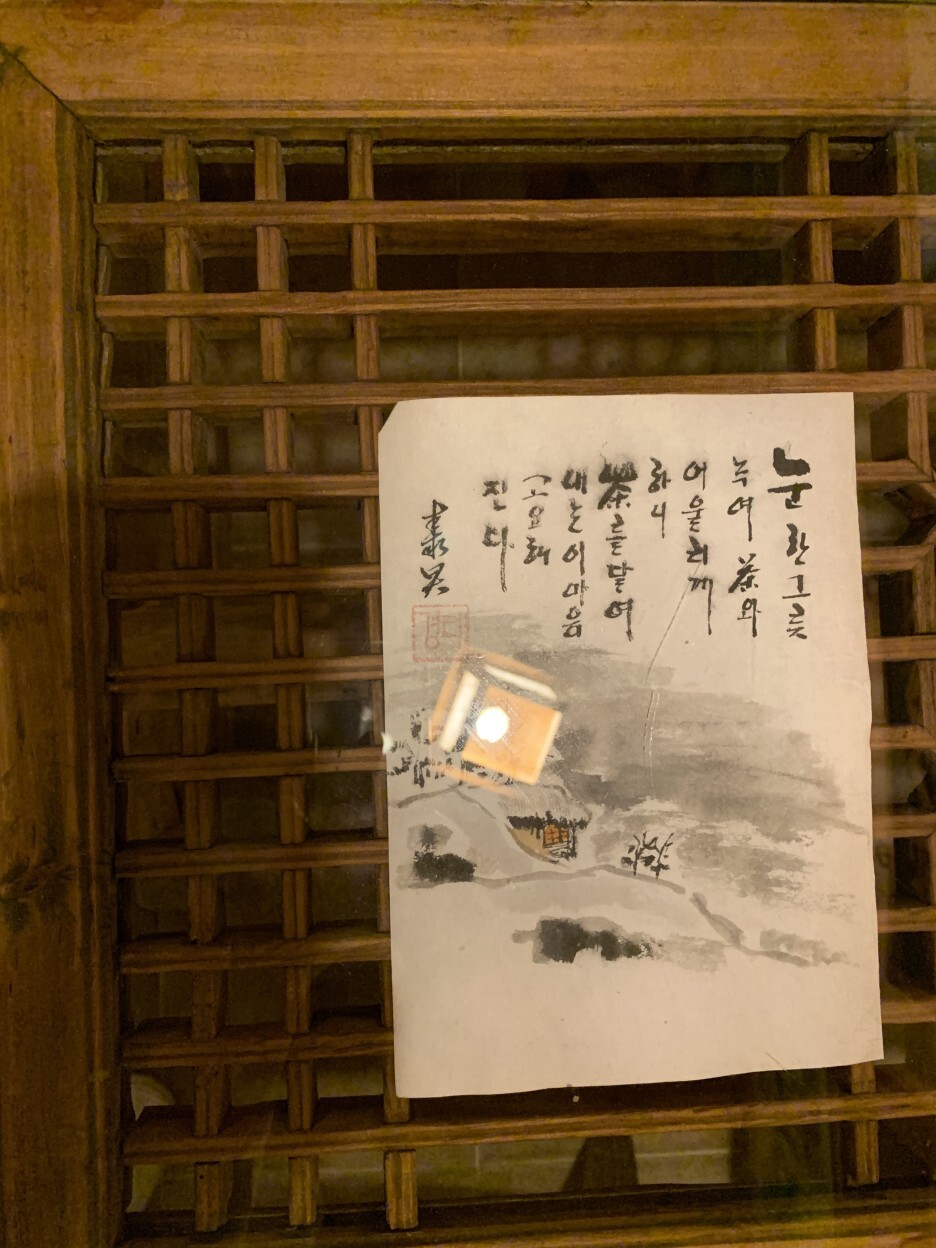 눈 한그릇
녹여 茶와
어울리게
하니
茶를 달여
내는 이 마음
고요해
진다